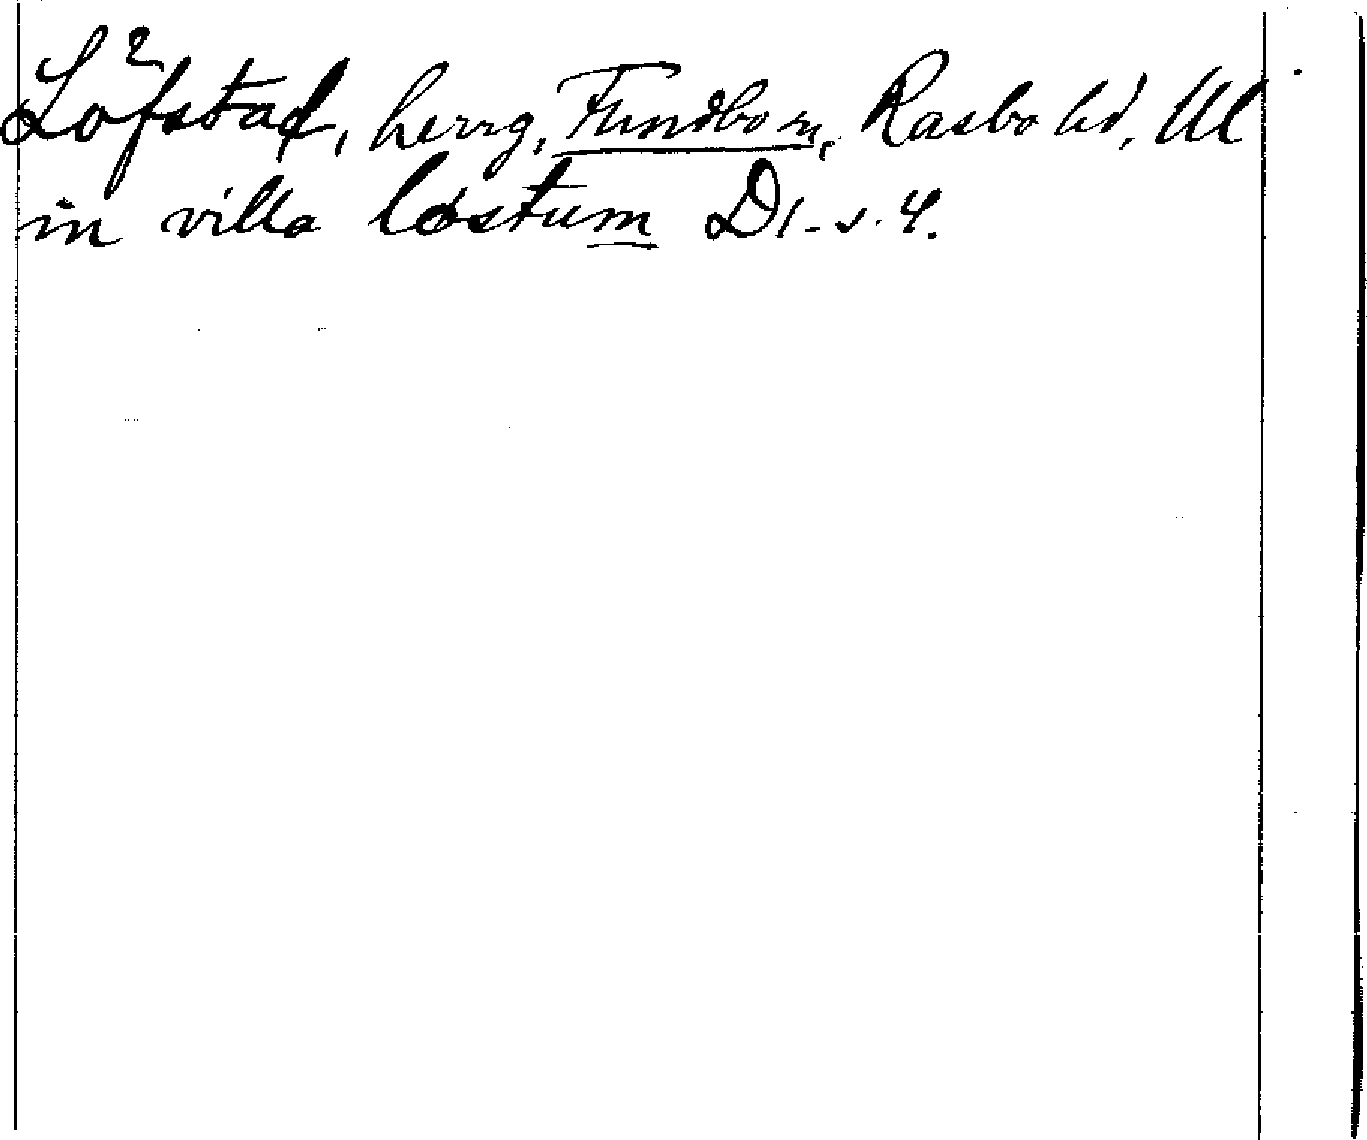 Löfstad, herrg, Funbo sn, Rasbo hd, Ul
in villa løstum D1. s. 4.